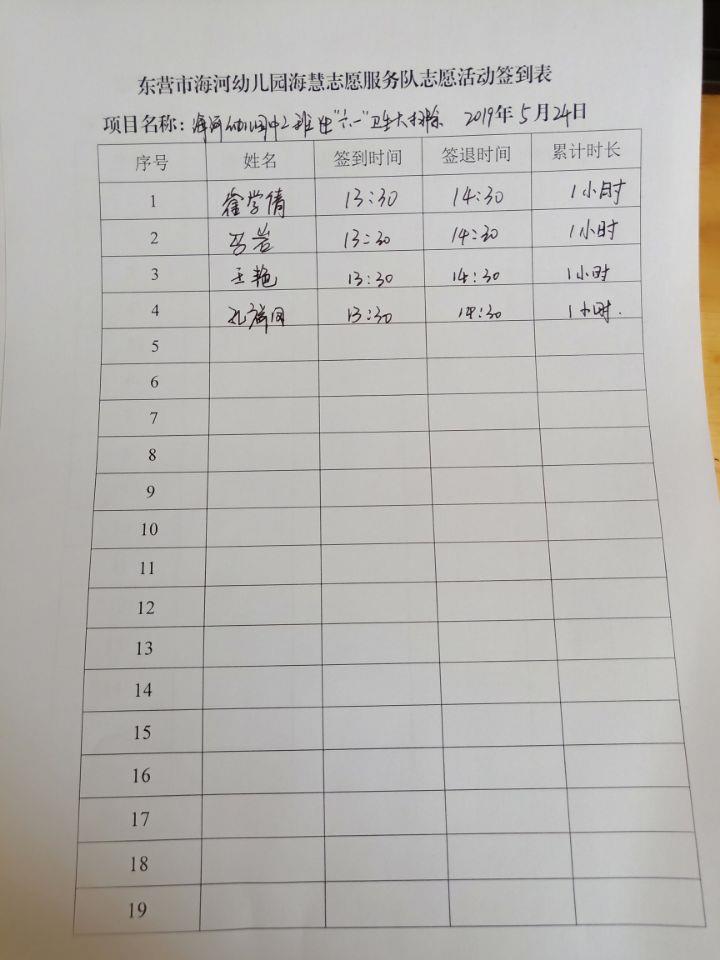 东营市海河幼儿园海慧志愿服务队志愿活动签到表
项目名称：海河幼儿园中二班迎"六一"卫生大扫除 2019年5月24日
序号 姓名 签到时间 签退时间 累计时长
1 霍学倩 13:30 14:30 1小时
2 马岩 13:30 14:30 1小时
3 王艳 13:30 14:30 1小时
4 孔 13:30 14:30 1小时.
5
6
7
8
9
10
11
12
13
14
15
16
17
18
19